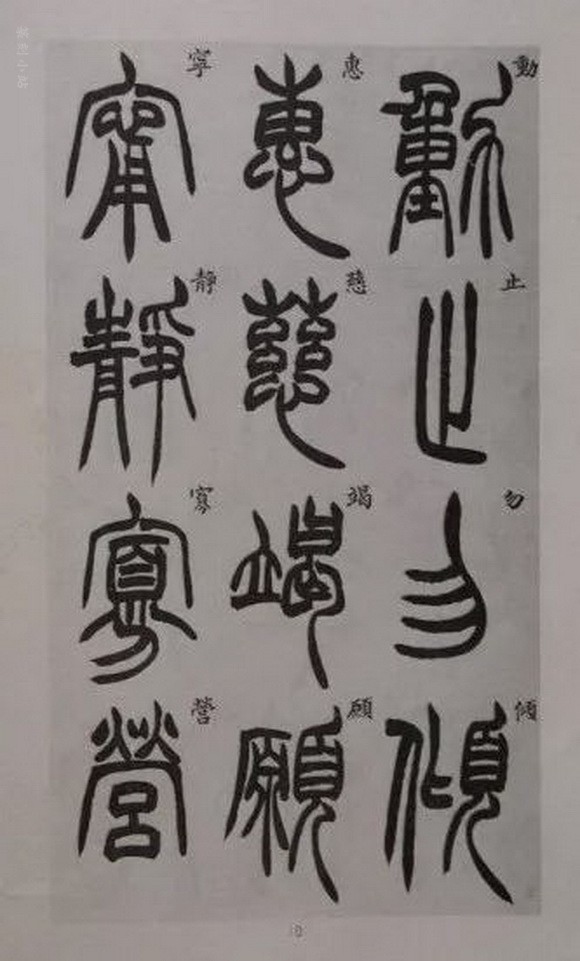 動止勿傾
惠慈竭願
寧靜寡營
10